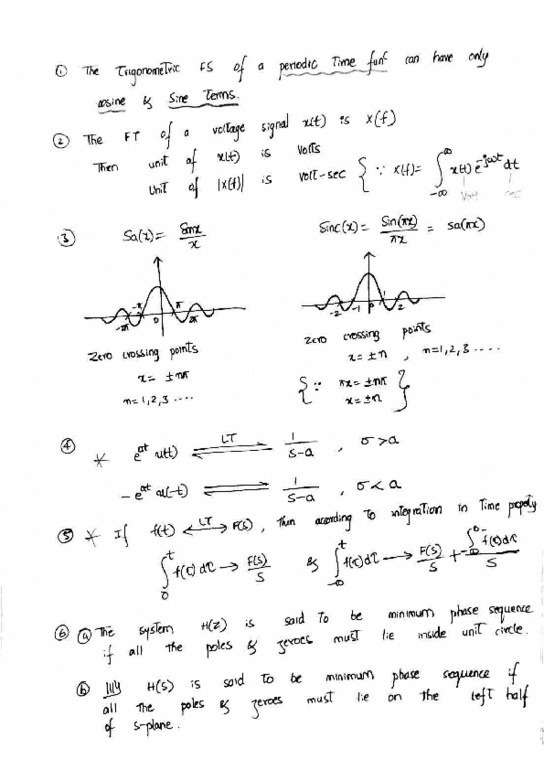 ① The Trigonometric FS of a periodic Time funⁿ can have only
cosine & Sine Terms.
② The FT of a voltage signal x(t) is X(f)
Then unit of x(t) is volts
Unit of |X(f)| is volt-sec { ∵ X(f) = ∫_{-∞}^{∞} x(t) e^{-jωt} dt
Volt sec
③ Sa(x) = Sinx/x
Sinc(x) = Sin(πx)/πx = Sa(πx)
-2π -π 0 π 2π
-2 -1 0 1 2
Zero crossing points
x = ±nπ
n = 1, 2, 3 ....
Zero crossing points
x = ±n , n = 1, 2, 3 ....
{ ∵ πx = ±nπ
x = ±n }
④ * e^{at} u(t) ⇌ LT 1/(s-a) , σ > a
- e^{at} u(-t) ⇌ 1/(s-a) , σ < a
⑤ * If f(t) ⟷ LT F(s), Then according To integration in Time property
∫_0^t f(τ) dτ → F(s)/s & ∫_{-∞}^t f(τ) dτ → F(s)/s + ∫_{-∞}^{0^-} f(τ) dτ / s
⑥ ⓐ The system H(z) is said To be minimum phase sequence
if all the poles & zeroes must lie inside unit circle.
ⓑ |||ly H(s) is said To be minimum phase sequence if
all the poles & zeroes must lie on the left half
of s-plane.